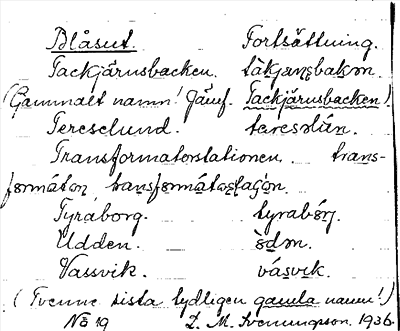 Blåsut. Fortsättning.
Tackjärnsbacken. tàkjæɳsbakən.
(Gammalt namn! Jämf. Tackjärnsbacken!)
Tereselund. teresəlún.
Transformatorstationen. trans-
fɷrmátɷɳ
Tyraborg. tyrabórj.
Udden. ùdən.
Vassvik. vásvik.
(Tvenne sista tydligen gamla namn!)
No 19 D. M. Svenningson. 1936